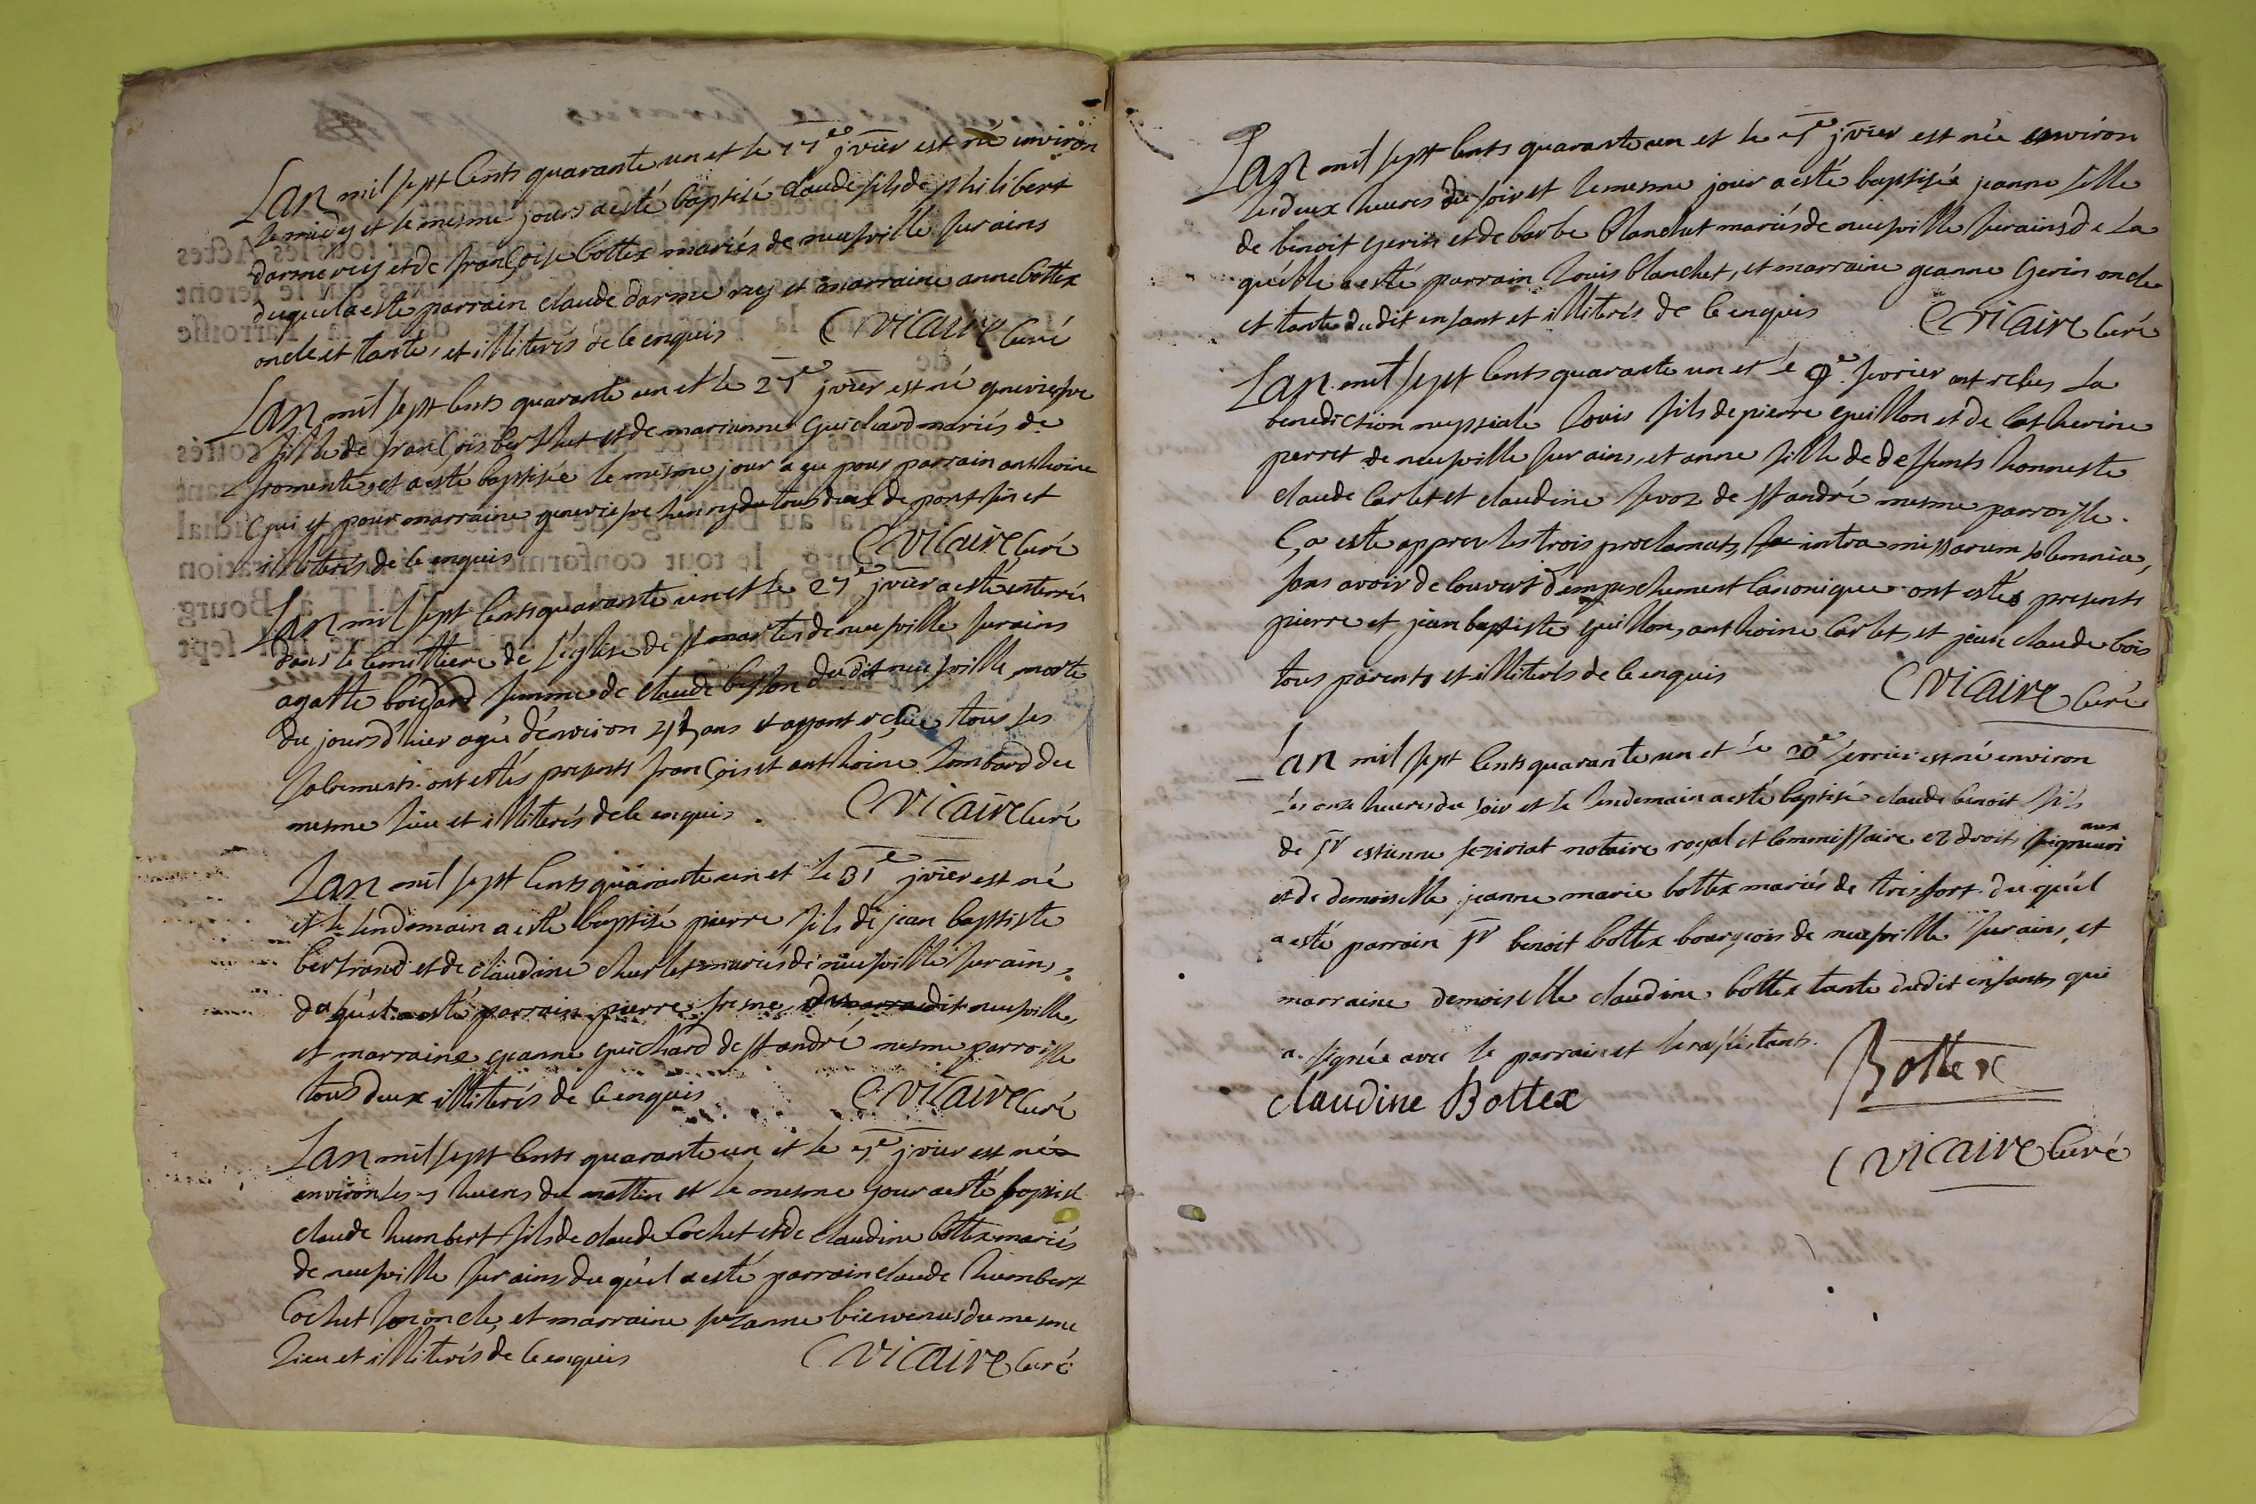 Lan mil sept Cents quarante un et le 17e jvier est né environ
le midy et le mesme jours a esté baptisé claude fils de philibert
darmerey et de françoise bottex mariés de neufville sur ains
duquel a esté parrain claude darmerey et marraine anne bottex
oncle et tante, et illiterés de ce enquis Vicaire Curé
Lan mil sept Cents quarante un et le 27e jvier est né geneviefve
fille de françois berthet et de marianne Guichard mariés de
fromente, et a esté baptisée le mesme jour a eu pour parrain anthoine
Gui et pour marraine geneviefve henry tous deux de pontsin et
illiterés de ce enquis Vicaire Curé
Lan mil sept Cents quarante un et le 27e jvier a esté enterré
dans le Cemittiere de L'église de st martin de neufville sur ains
agathe femme de claude besson dudit neufville morte
du jours d'hier agé d'environ ans et ayant reçue tous ses
Sacrements. ont estés presents françois et anthoine Lombard du
mesme lieu et illiterés de ce enquis. Vicaire Curé
Lan mil sept Cents quarante un et le 31e jvier est né
et le lendemain a esté baptisé pierre fils de jean baptiste
bertrand et de claudine Churlet mariés de neufville sur ains,
duquel a esté parrain pierre dudit neufville,
et marraine jeanne guichard de st andré mesme parroisse
tous deux illiterés de ce enquis Vicaire Curé
Lan mil sept Cents quarante un et le 7e jvier est né
environ les 7 heures du mattin et le mesme jour a esté baptisé
claude humbert fils de claude Cochet et de claudine bottex mariés
de neufville sur ains duquel a esté parrain claude humbert
Cochet son oncle, et marraine suzanne bienvenus du mesme
lieu et illiterés de ce enquis Vicaire Curé
Lan mil sept Cents quarante un et le 7e jvier est née environ
les deux heures du soir et le mesme jour a esté baptisée jeanne fille
de benoit gerin et de barbe blanchet mariés de neufville sur ains, de La
quélle a esté parrain Louis blanchet, et marraine jeanne Gerin oncle
et tante dudit enfant et illiterés de ce enquis Vicaire Curé
Lan mil sept Cents quarante un et le 9e fevrier ont reçus La
benediction nuptiale Louis fils de pierre guillon et de Catherine
perret de neufville sur ains, et anne fille de defunts honneste
claude Carlet et claudine sevoz de st andré mesme parroisse.
Ç'a esté apprez les trois proclamats intra missarum solemnia,
sans avoir decouvert d'empeschement Canonique ont estés presents
pierre et jean baptiste guillon, anthoine Carlet, et jean claude bois
tous parents et illiterés de ce enquis Vicaire Curé
Lan mil sept Cents quarante un et le 20e fevrier est né environ
les onze heures du soir et le lendemain a esté baptisé claude benoit fils
de sr estienne seziriat notaire royal et Commissaire ez droits seigneuriaux
et de demoiselle jeanne marie bottex mariés de treffort. duquel
a esté parrain sr benoit bottex bourgeois de neufville sur ains, et
marraine demoiselle claudine bottex tante dudit enfants qui
a signée avec le parrain et les assistants.
Claudine Bottex Bottex
Vicaire Curé